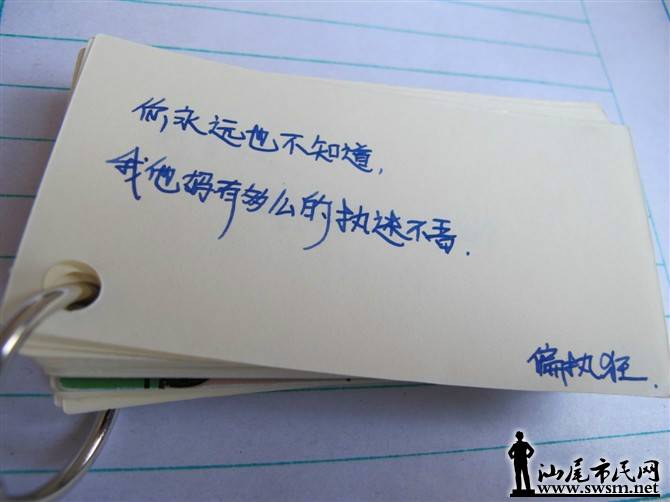 你永远也不知道,
我他妈有多么的执迷不悟.
偏执狂.
汕尾市民网
www.swsm.net